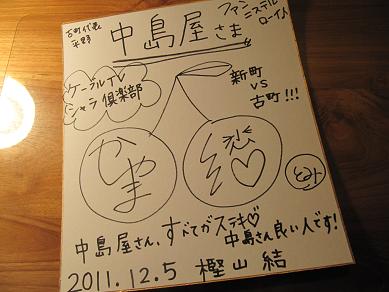 古町代表
平野
中島屋さま
ファン
ニステル
ローイ
ケーブルTV
シャラ倶楽部
新町
VS
古町!!!
かしやま
結♡
とみ
中島屋さん、すべてがステキ♡
中島さん良い人です!
2011.12.5 樫山 結